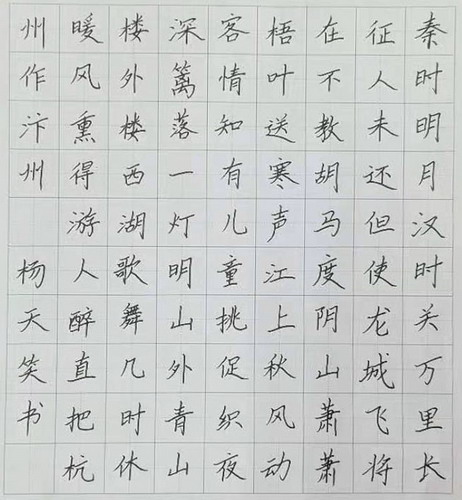 秦时明月汉时关万里长
征人未还但使龙城飞将
在不教胡马度阴山萧萧
梧叶送寒声江上秋风动
客情知有儿童挑促织夜
深篱落一灯明山外青山
楼外楼西湖歌舞几时休
暖风熏得游人醉直把杭
州作汴州 杨天笑书